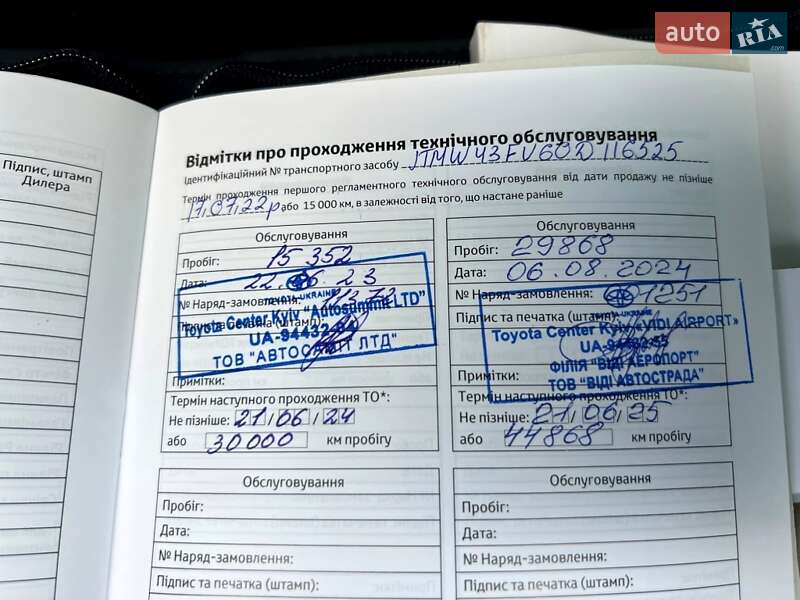 auto RIA.com
Підпис, штамп
Дилера
Відмітки про проходження технічного обслуговування
Ідентифікаційний № транспортного засобу JTMW43FV60D116525
Термін проходження першого регламентного технічного обслуговування від дати продажу не пізніше
17,07,22р або 15 000 км, в залежності від того, що настане раніше
Обслуговування
Пробіг: 15 352
Дата: 22.06.23
№ Наряд-замовлення:
Toyota Center Kyiv "Autosummit LTD"
UA-94432
ТОВ "АВТОСАМІТ ЛТД"
Примітки:
Термін наступного проходження ТО*:
Не пізніше: 21/06/24
або 30000 км пробігу
Обслуговування
Пробіг: 29868
Дата: 06.08.2024
№ Наряд-замовлення: 01251
Підпис та печатка (штамп):
Toyota Center Kyiv «VIDI AIRPORT»
ФІЛІЯ "ВІДІ АЕРОПОРТ"
ТОВ "ВІДІ АВТОСТРАДА"
Примітки:
Термін наступного проходження ТО*:
Не пізніше: 21/06/25
або 44868 км пробігу
Обслуговування
Пробіг:
Дата:
№ Наряд-замовлення:
Підпис та печатка (штамп):
Обслуговування
Пробіг:
Дата:
№ Наряд-замовлення:
Підпис та печатка (штамп):